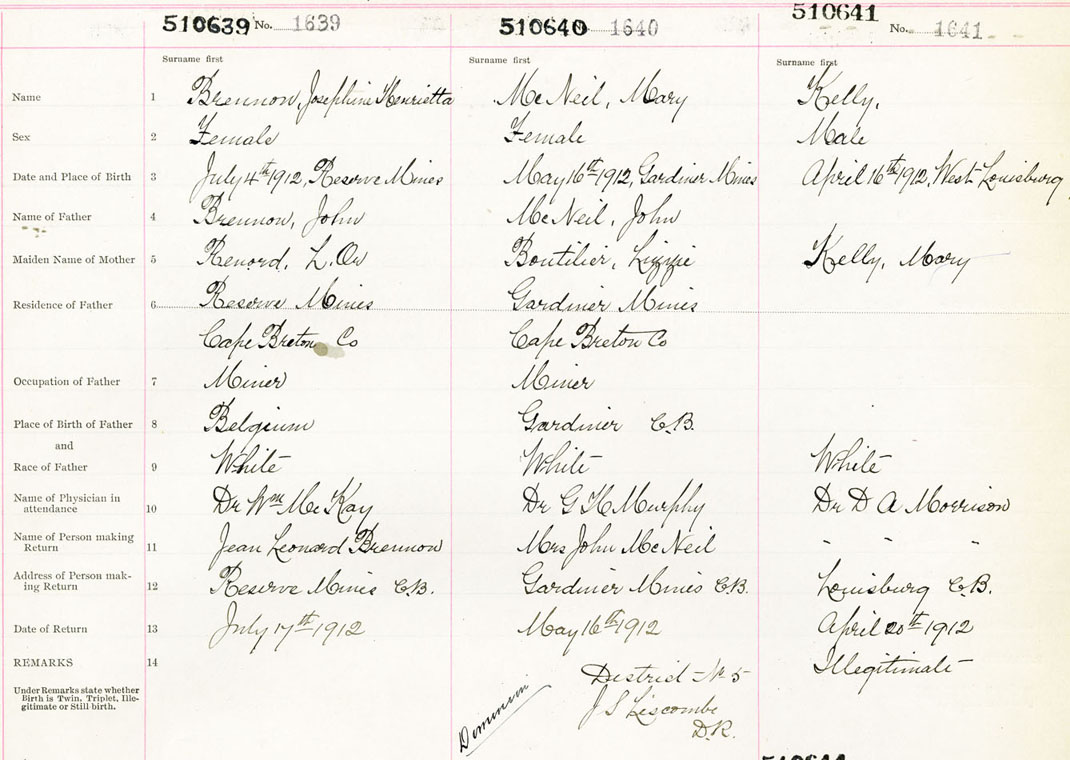 510639 No. 1639 510640 1640 510641 No. 1641
Surname first Surname first Surname first
Name 1 Brennon, Josephine Henrietta McNeil, Mary Kelly,
Sex 2 Female Female Male
Date and Place of Birth 3 July 4th 1912, Reserve Mines May 16th 1912, Gardiner Mines April 16th 1912, West Louisburg
Name of Father 4 Brennon, John McNeil, John
Maiden Name of Mother 5 Renord, L. Boutilier, Lizzie Kelly, Mary
Residence of Father 6 Reserve Mines Gardiner Mines
Cape Breton Co Cape Breton Co
Occupation of Father 7 Miner Miner
Place of Birth of Father 8 Belgium Gardiner C.B.
and
Race of Father 9 White White White
Name of Physician in
attendance 10 Dr Wm McKay Dr G H Murphy Dr D A Morrison
Name of Person making
Return 11 Jean Leonard Brennon Mrs John McNeil " " "
Address of Person mak-
ing Return 12 Reserve Mines C.B. Gardiner Mines C.B. Louisburg C.B.
Date of Return 13 July 17th 1912 May 16th 1912 April 20th 1912
REMARKS 14 Illegitimate
Under Remarks state whether
Birth is Twin, Triplet, Ille-
gitimate or Still birth.
District No 5
J S Liscombe
D.R.
Dominion